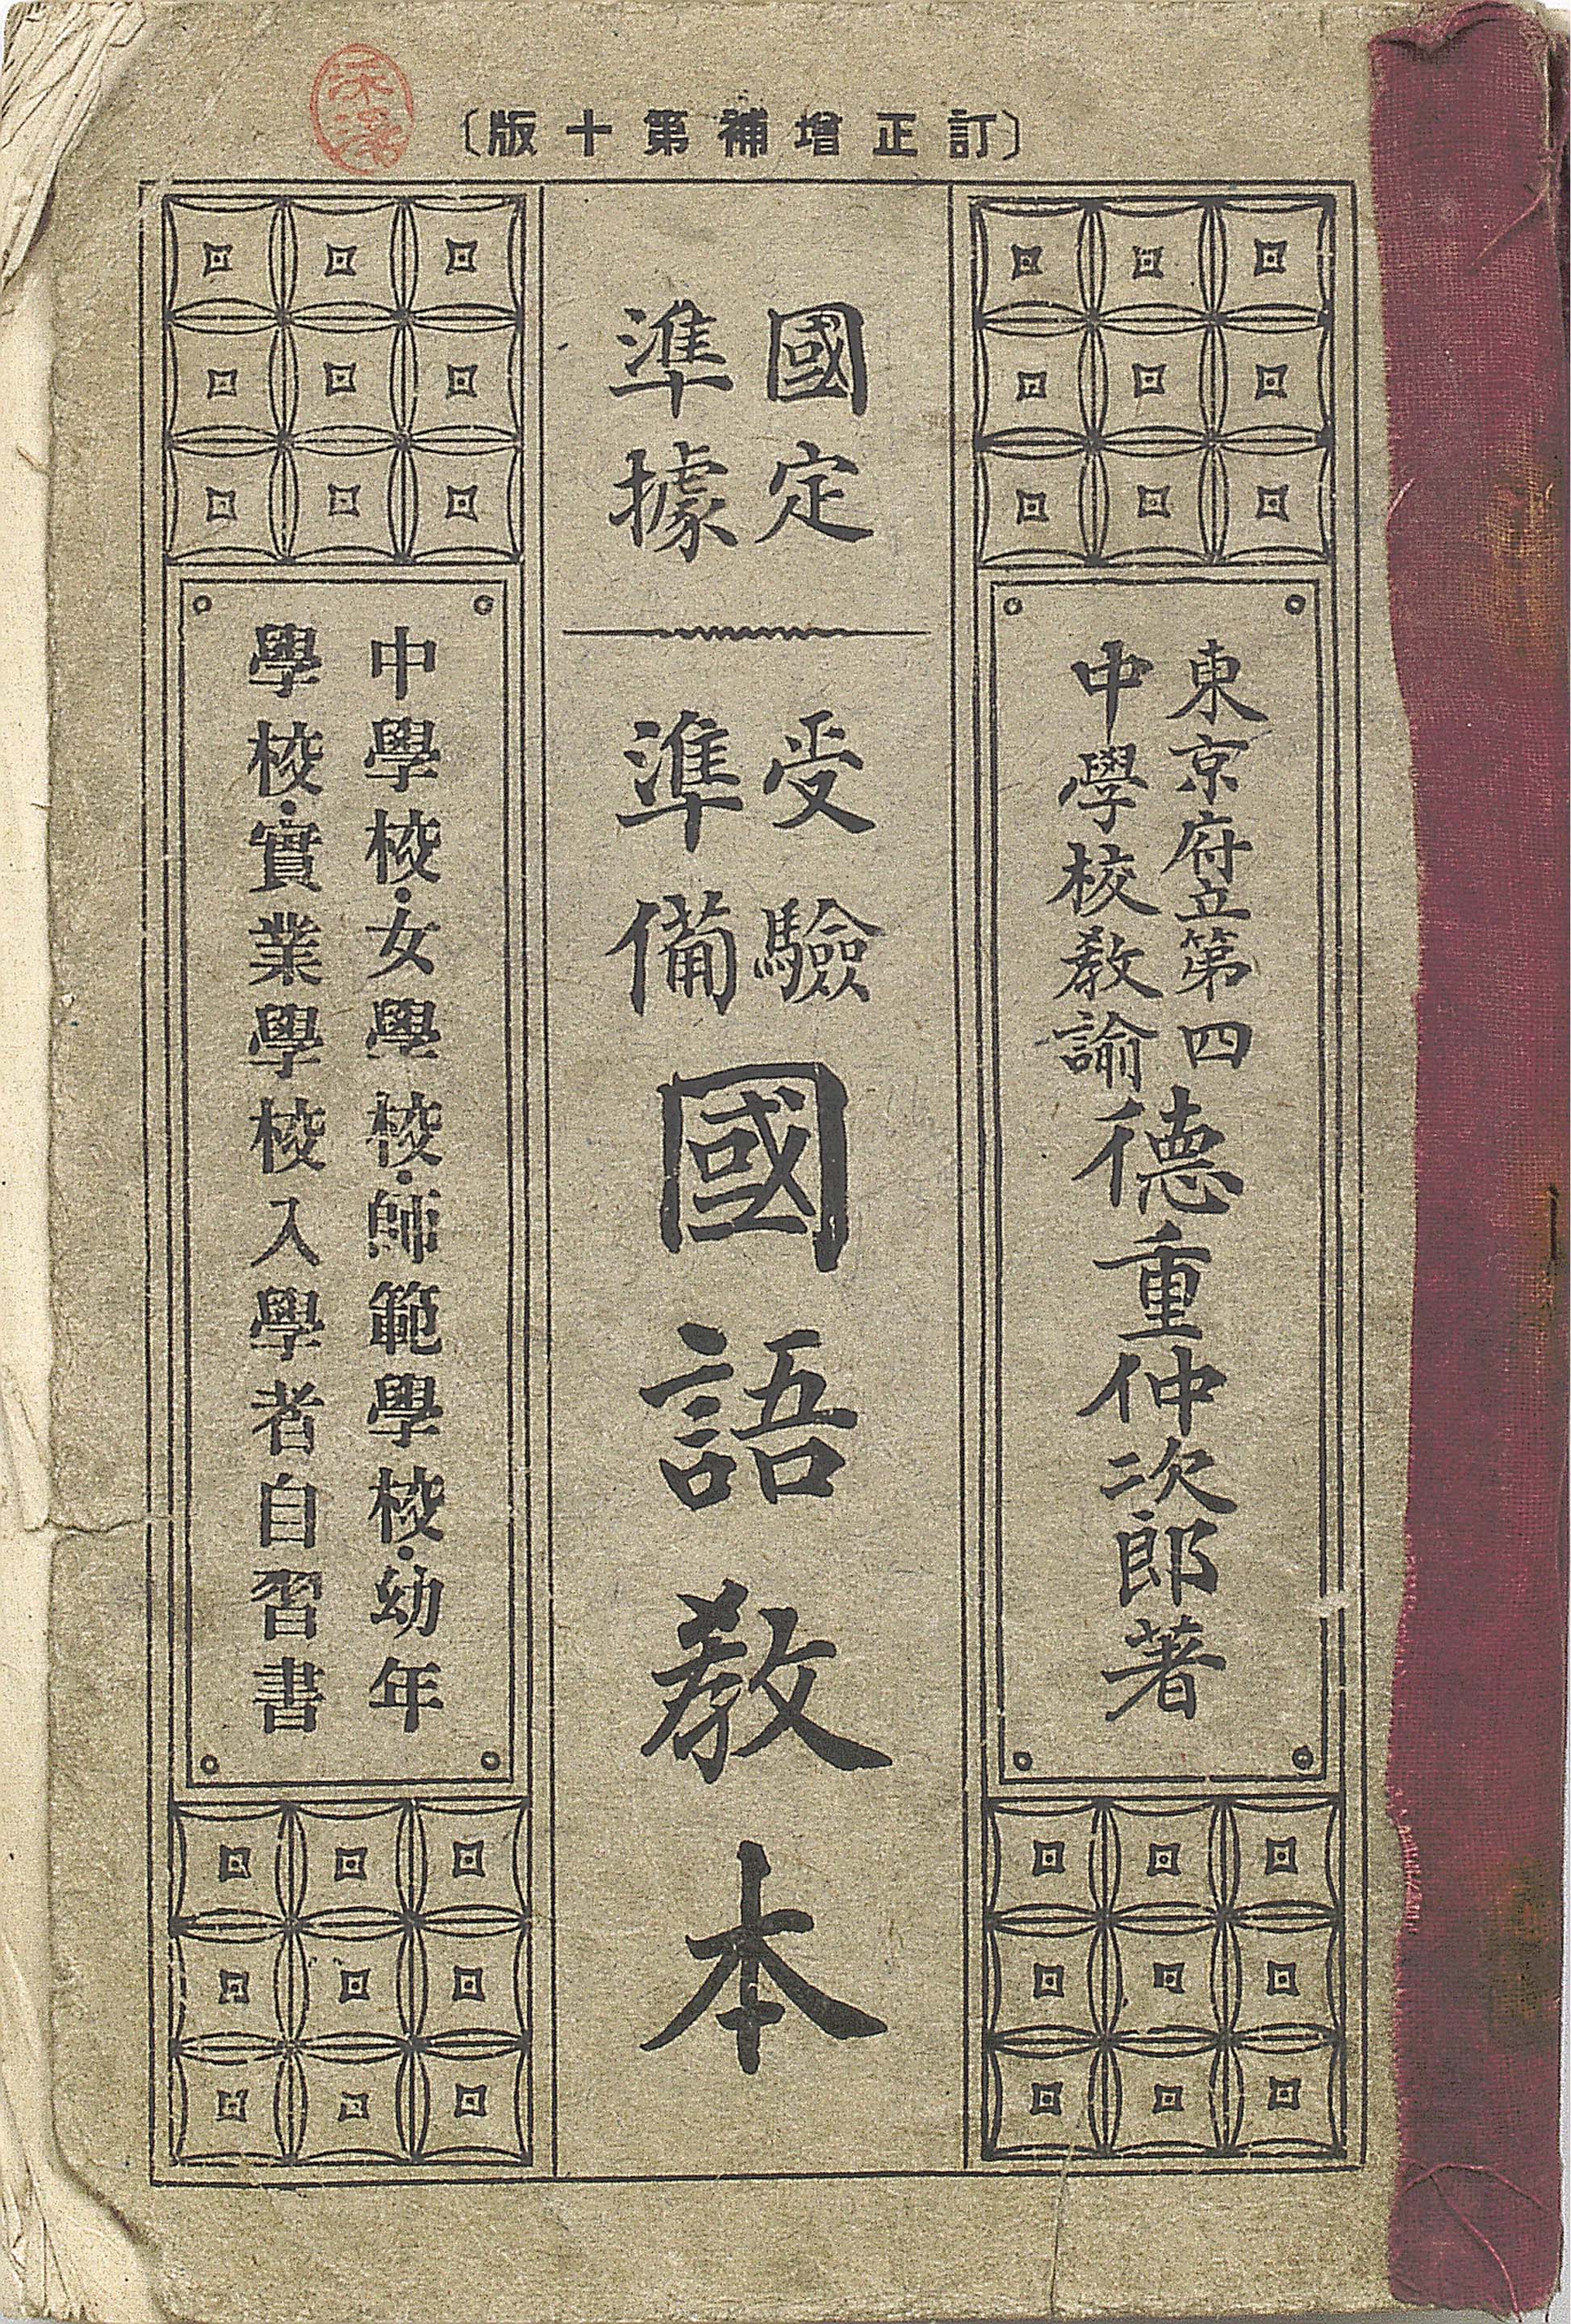 〔訂正增補第十版〕
東京府立第四
中學校敎諭
德重仲次郎著
國定
準據
受驗
準備
國語敎本
中學校・女學校・師範學校・幼年
學校・實業學校入學者自習書